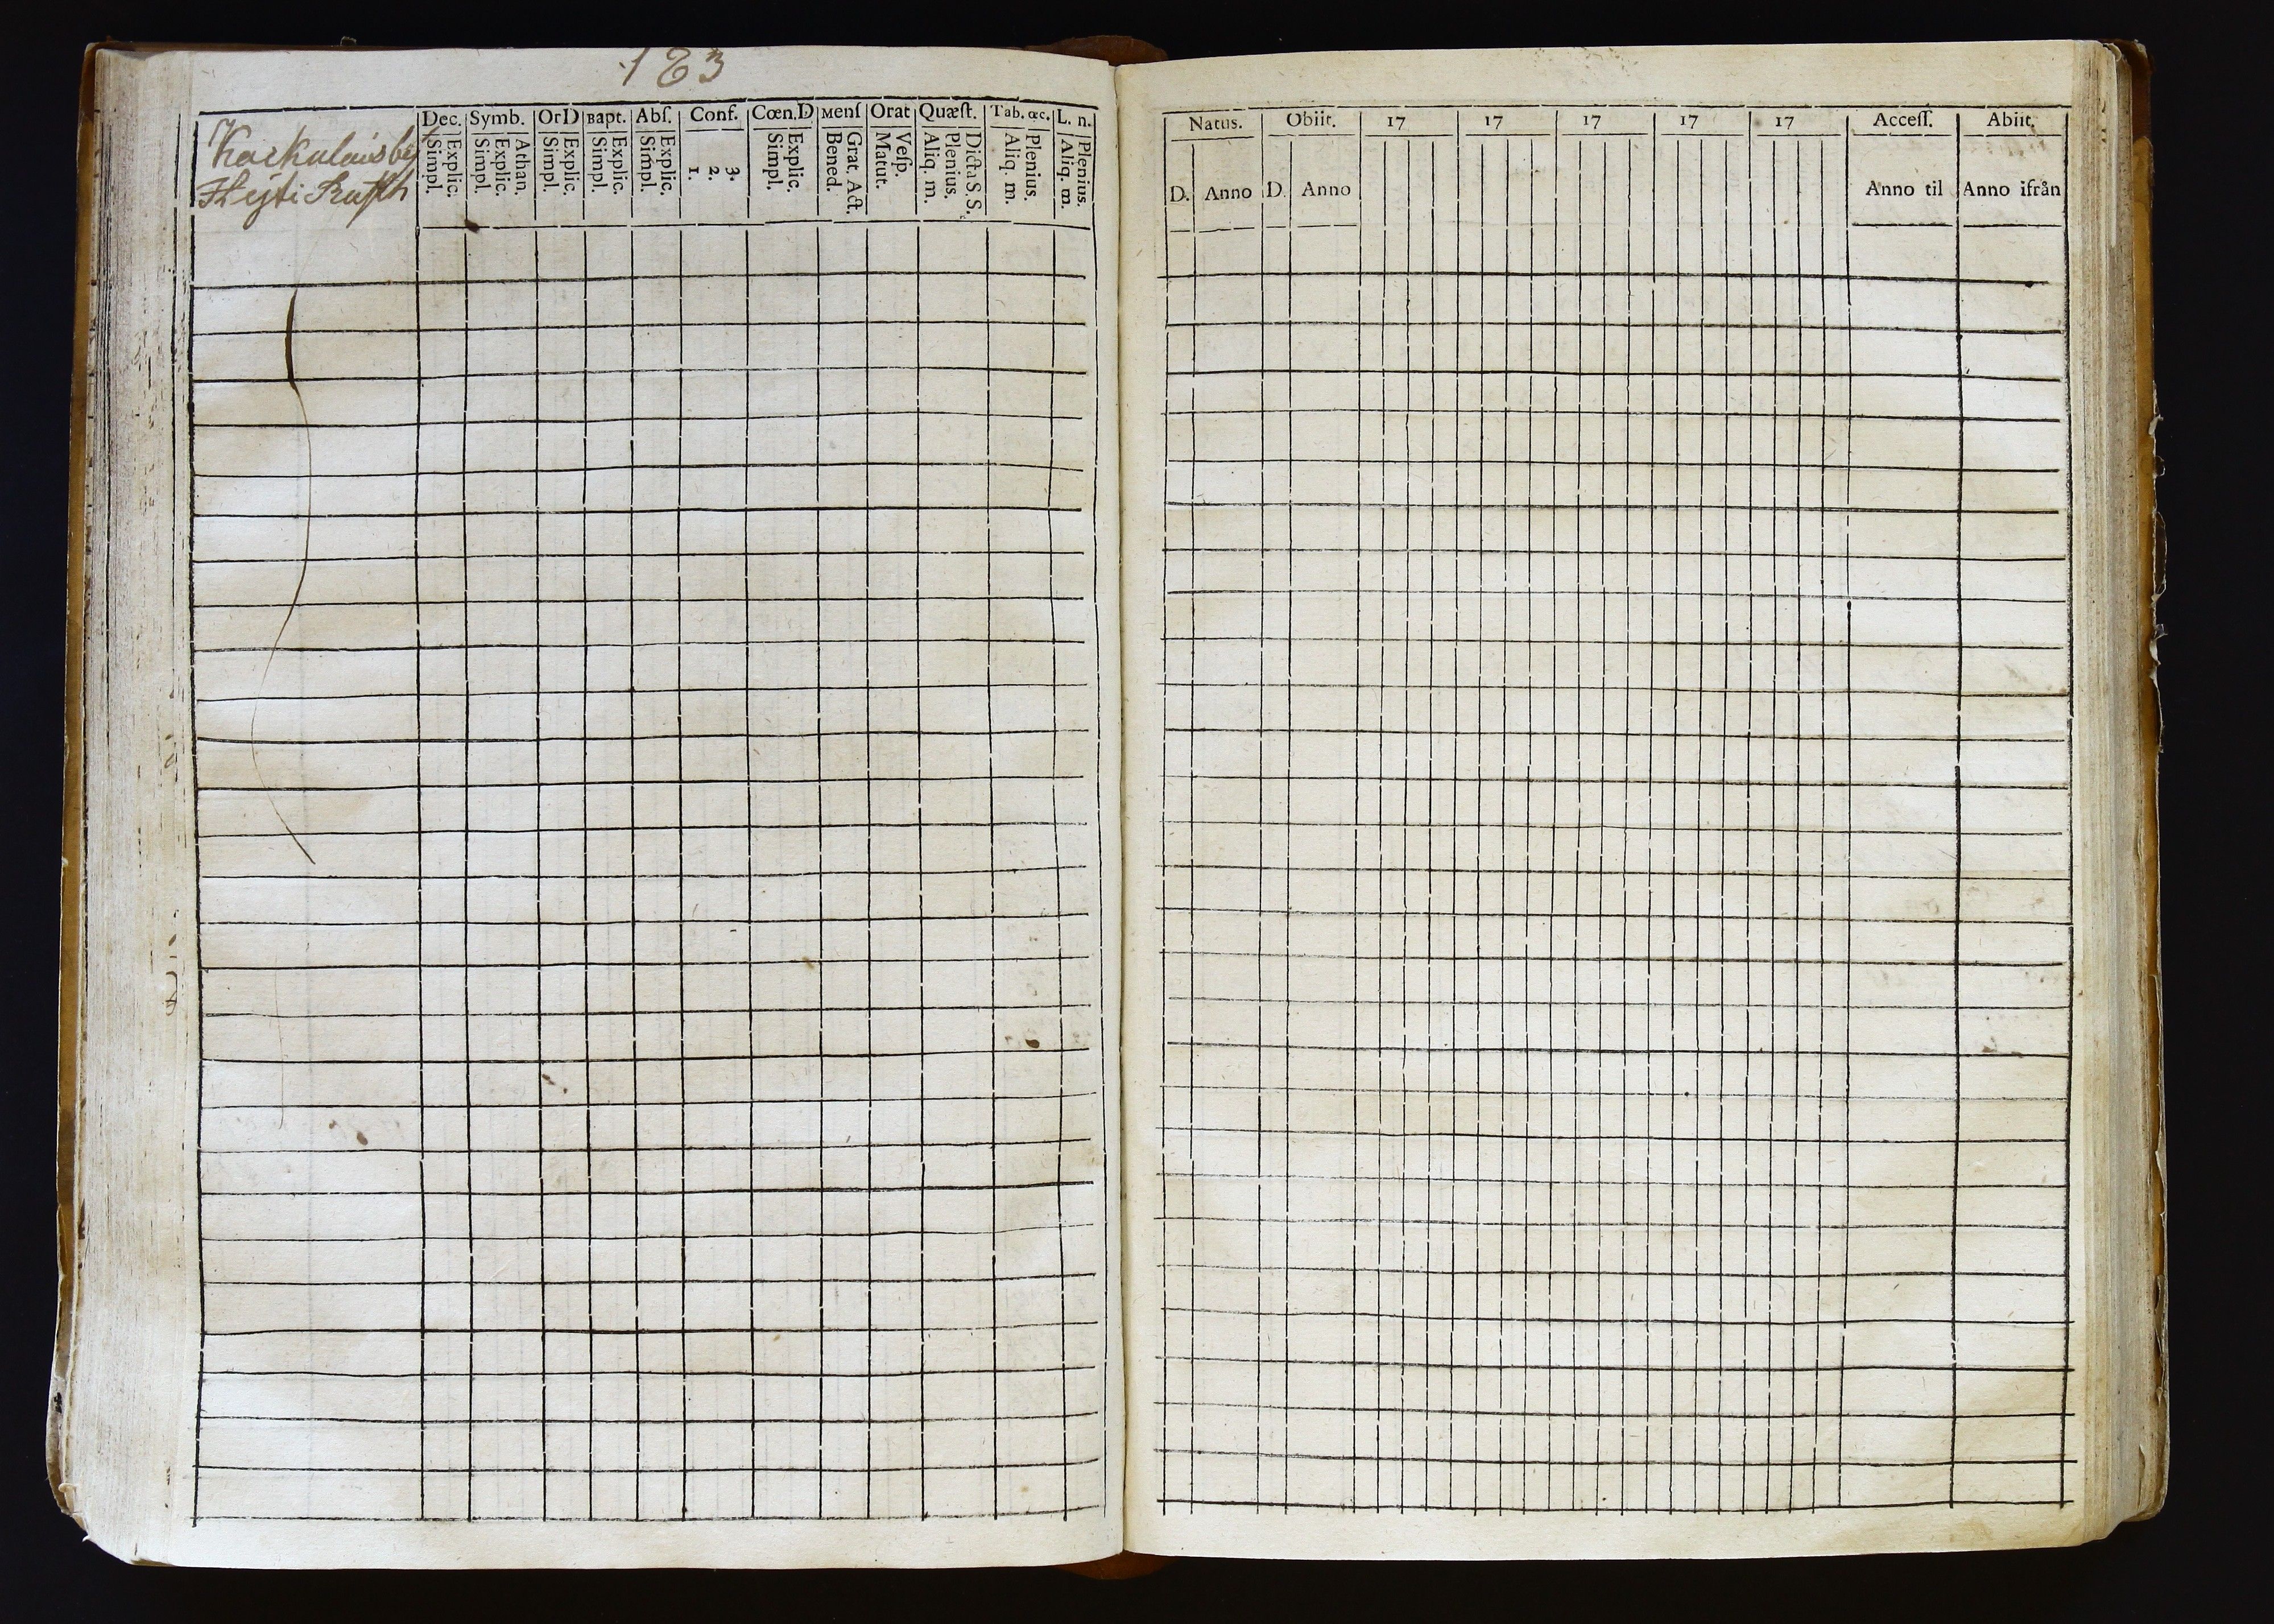 183
Dec. Symb. OrD Bapt. Abſ. Conf. Cœn.D Menſ Orat Quæſt. Tab. œc. L. n.
Kaikulais by
Simpl. Explic. Simpl. Explic. Athan. Simpl. Explic. Simpl. Explic. Simpl. Explic. 1. 2. 3. Simpl. Explic. Bened. Grat. Act. Matut. Veſp. Aliq. m. Plenius. Dicta S. S. Aliq. m. Plenius. Aliq. m. Plenius.
Natus. Obiit. 17 17 17 17 17 Acceſſ. Abiit.
D. Anno D. Anno Anno til Anno ifrån